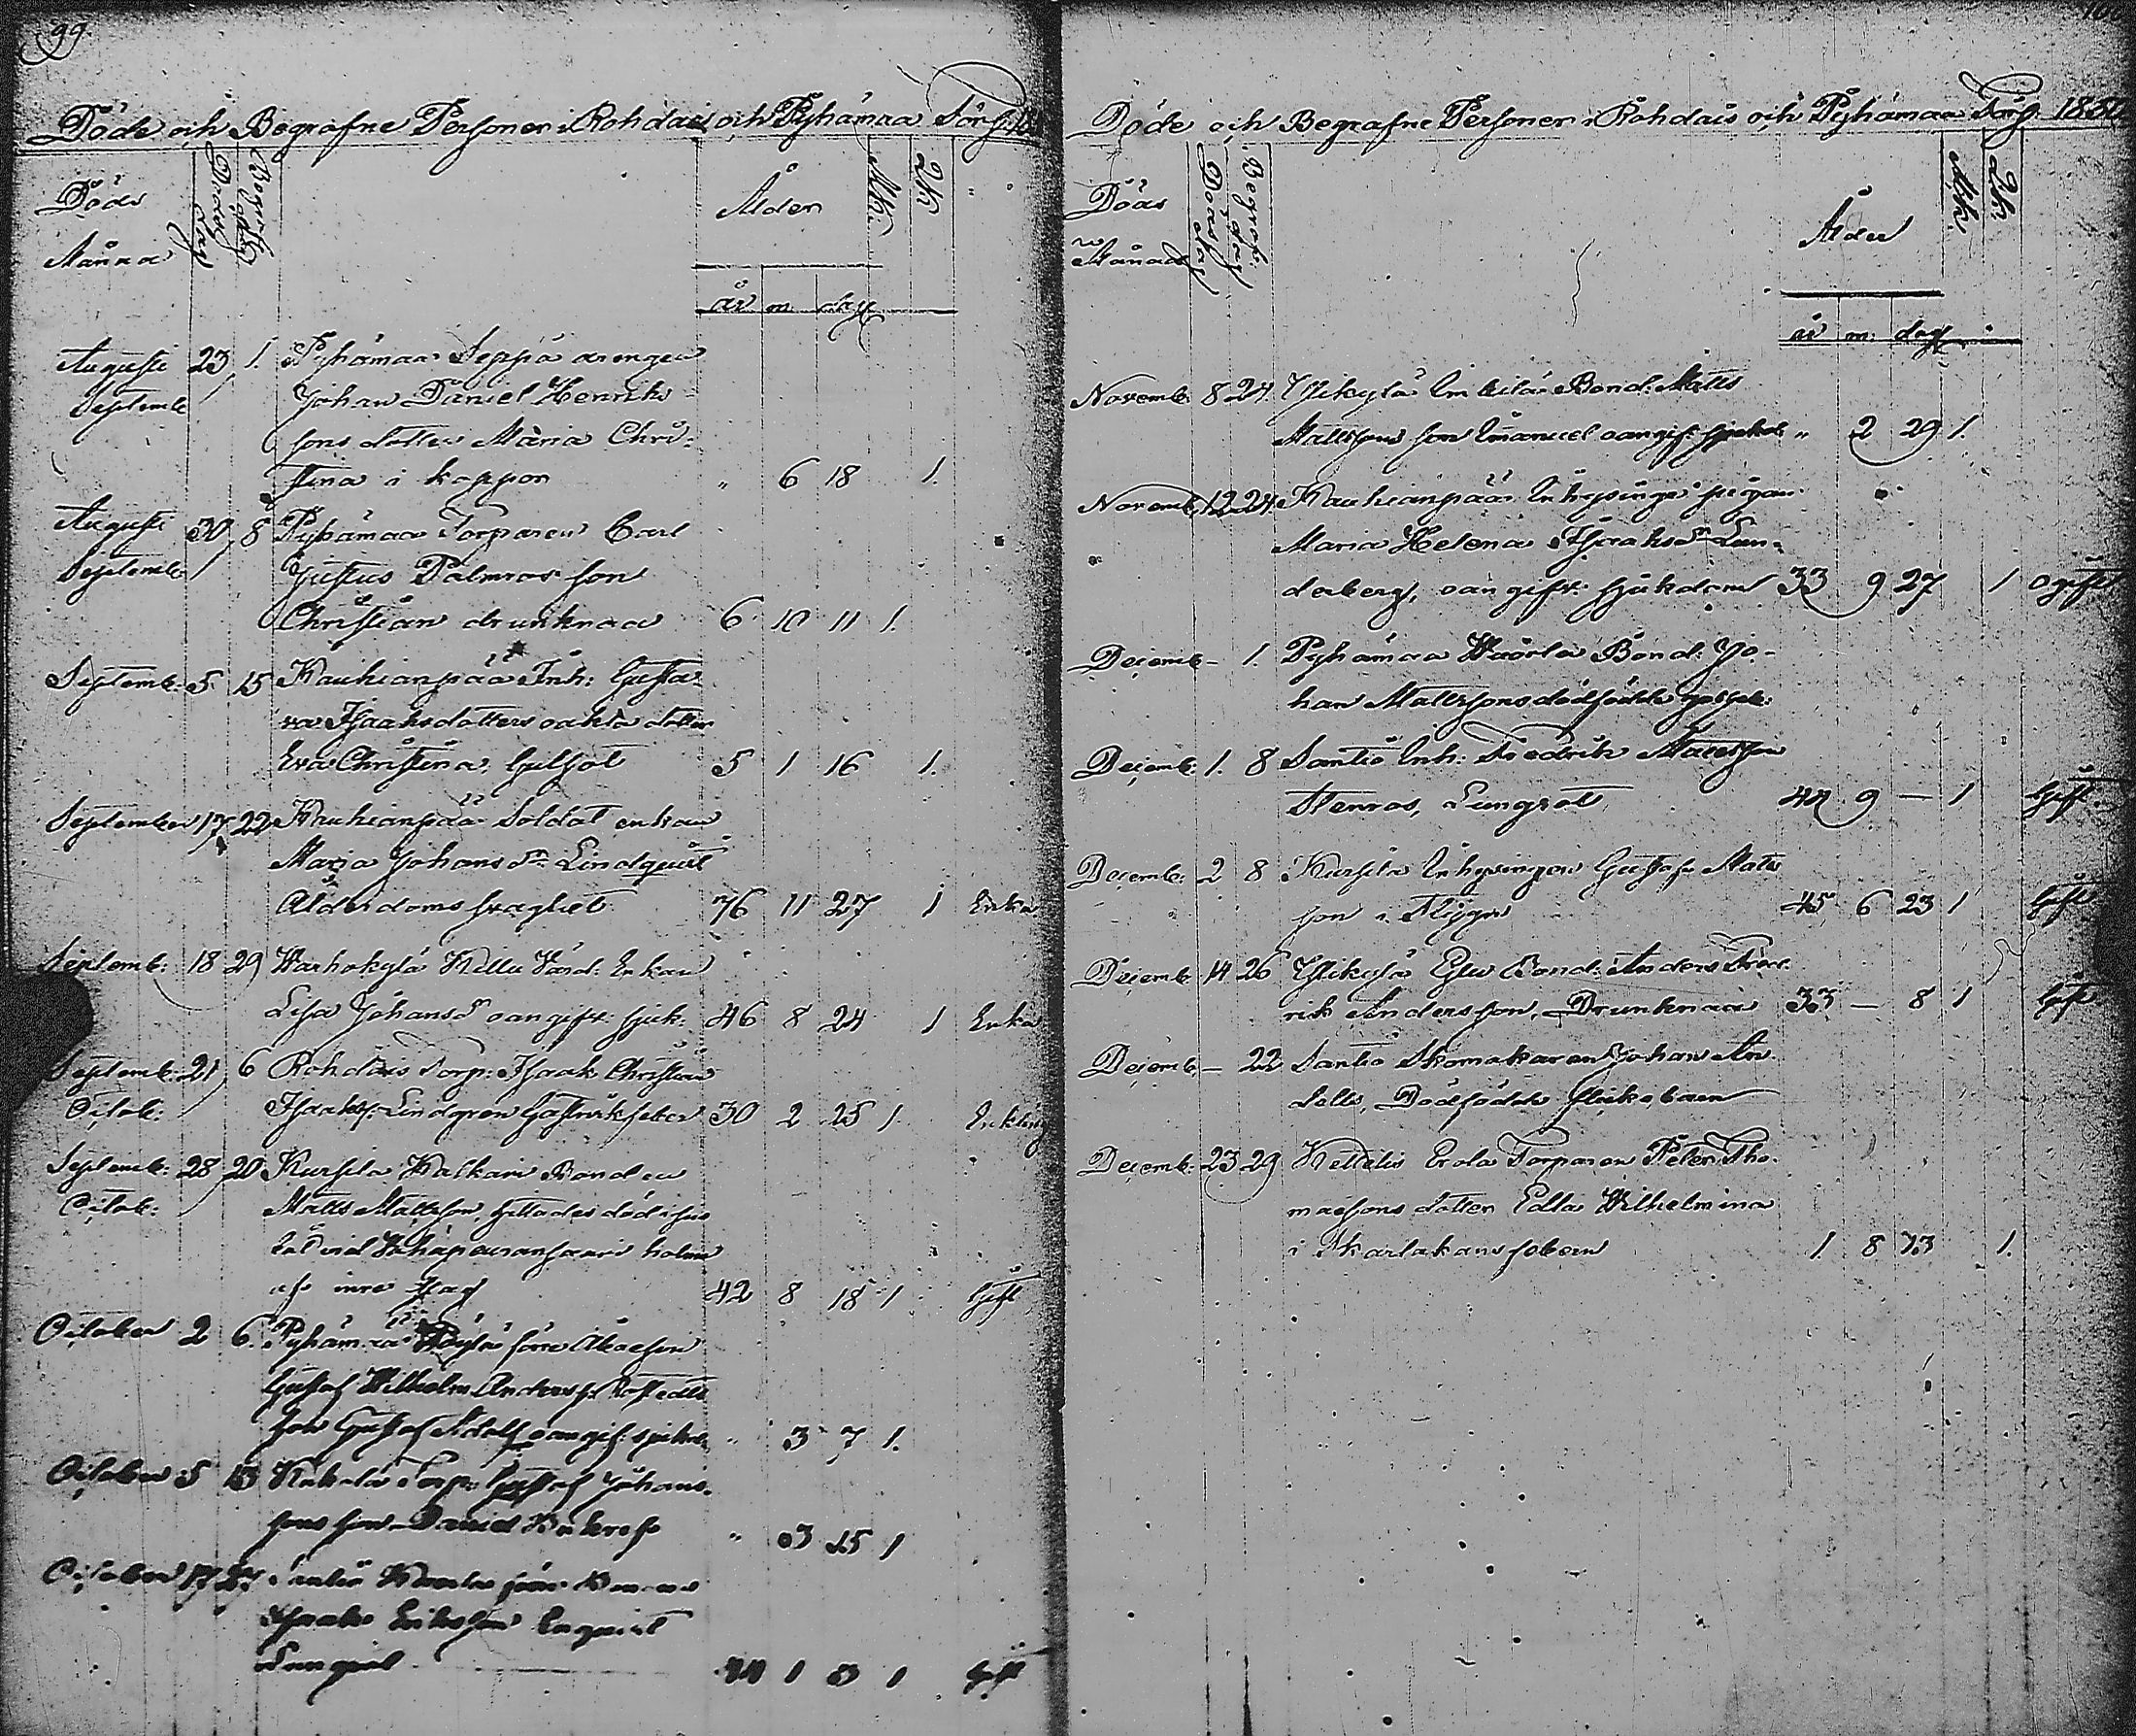 99.
Döde och Begrafne Personer i Rohdais och Pyhämaa Förs:
Döds
Månna
Döds dag
Begrafn: dag
Ålder
Mk:
Qk
år m. dag
Augusti 23 1. Pyhämaa Seppä
Septemb Johan Daniel Henriks-
sons dotter Maria Chri-
stina i koppor " 6 18 1.
Augusti 30 8 Pyhämaa Torparen Carl
Septemb: Justus Palmros son
Christian drunknad 6 10 11 1.
Septemb: 5 15 Kauhianpää Inh: Gusta-
va Isaaksdotters oäkta dotter
Eva Christina, Gulsot 5 1 16 1.
September 17 22 Kauhianpää Soldat enkan
Maria Johans dr Lindquist
Ålderdoms svaghet 76 11 27 1 Enka
Septemb: 18 29 Warhokylä Enkan
Lisa Johansdr oangift: sjuk: 46 8 24 1 Enka
Septemb: 21 6 Rohdais Torp: Isaak Christian
Octob: Isaakss: Lindgren Gastrisk feber 30 2 25 1. Enkling
Septemb: 28 20 Kursila Kalkain Bonden
Octob: Matts Mattsson, hittades död i
holme
af inre slag 42 8 18 1 Gift
October 2 6. Pyhämaa
Gustaf Wilhelm Anderss:
son Gustaf Adolf oangif: sjukd: " 3 7 1.
October 5 13 Torp: Gustaf Johans-
sons son Daniel " 3 15 1
October 17 Santio
Isaak Eriksson Enqvist
Lungsot 1 1 Gift
Döde och Begrafne Personer i Rohdais och Pyhämaa Förs: 1850
Döds
Månad
Döds dag
Begrafn: dag
Ålder
Mk:
Qk:
år m. dag
Novemb: 8 24 Ylikylä Bond: Matts
Mattssons son Emanuel oangif: sjukd: " 2 29 1.
Novemb: 12 24 Kauhianpää Inhysinge pigan
Maria Helena Isaaksdr Lin-
derberg, oangift: sjukdom 33 9 27 1 Ogift
Decemb - 1. Pyhämaa Bond: Jo-
han Mattssons dödfödde
Decemb: 1. 8 Santio Inh: Fredrik Mattsson
Stenros, Lungsot 9 — 1 Gift
Decemb: 2 8 Kursila Inhysingen Gustaf Mats
son i 45 6 23 1 Gift
Decemb: 14 26 Ylikylä Bond: Anders Fred-
rik Andersson, Drunknad 33 — 8 1 Gift
Decemb — 22 Santio Skomakaren Johan An
dells, Dödfödde flicke barn
Decemb: 23 29 Kettelis Erola Torparen Peter Tho-
massons dotter Edla Wilhelmina
i Skarlakans febern 1 8 1.